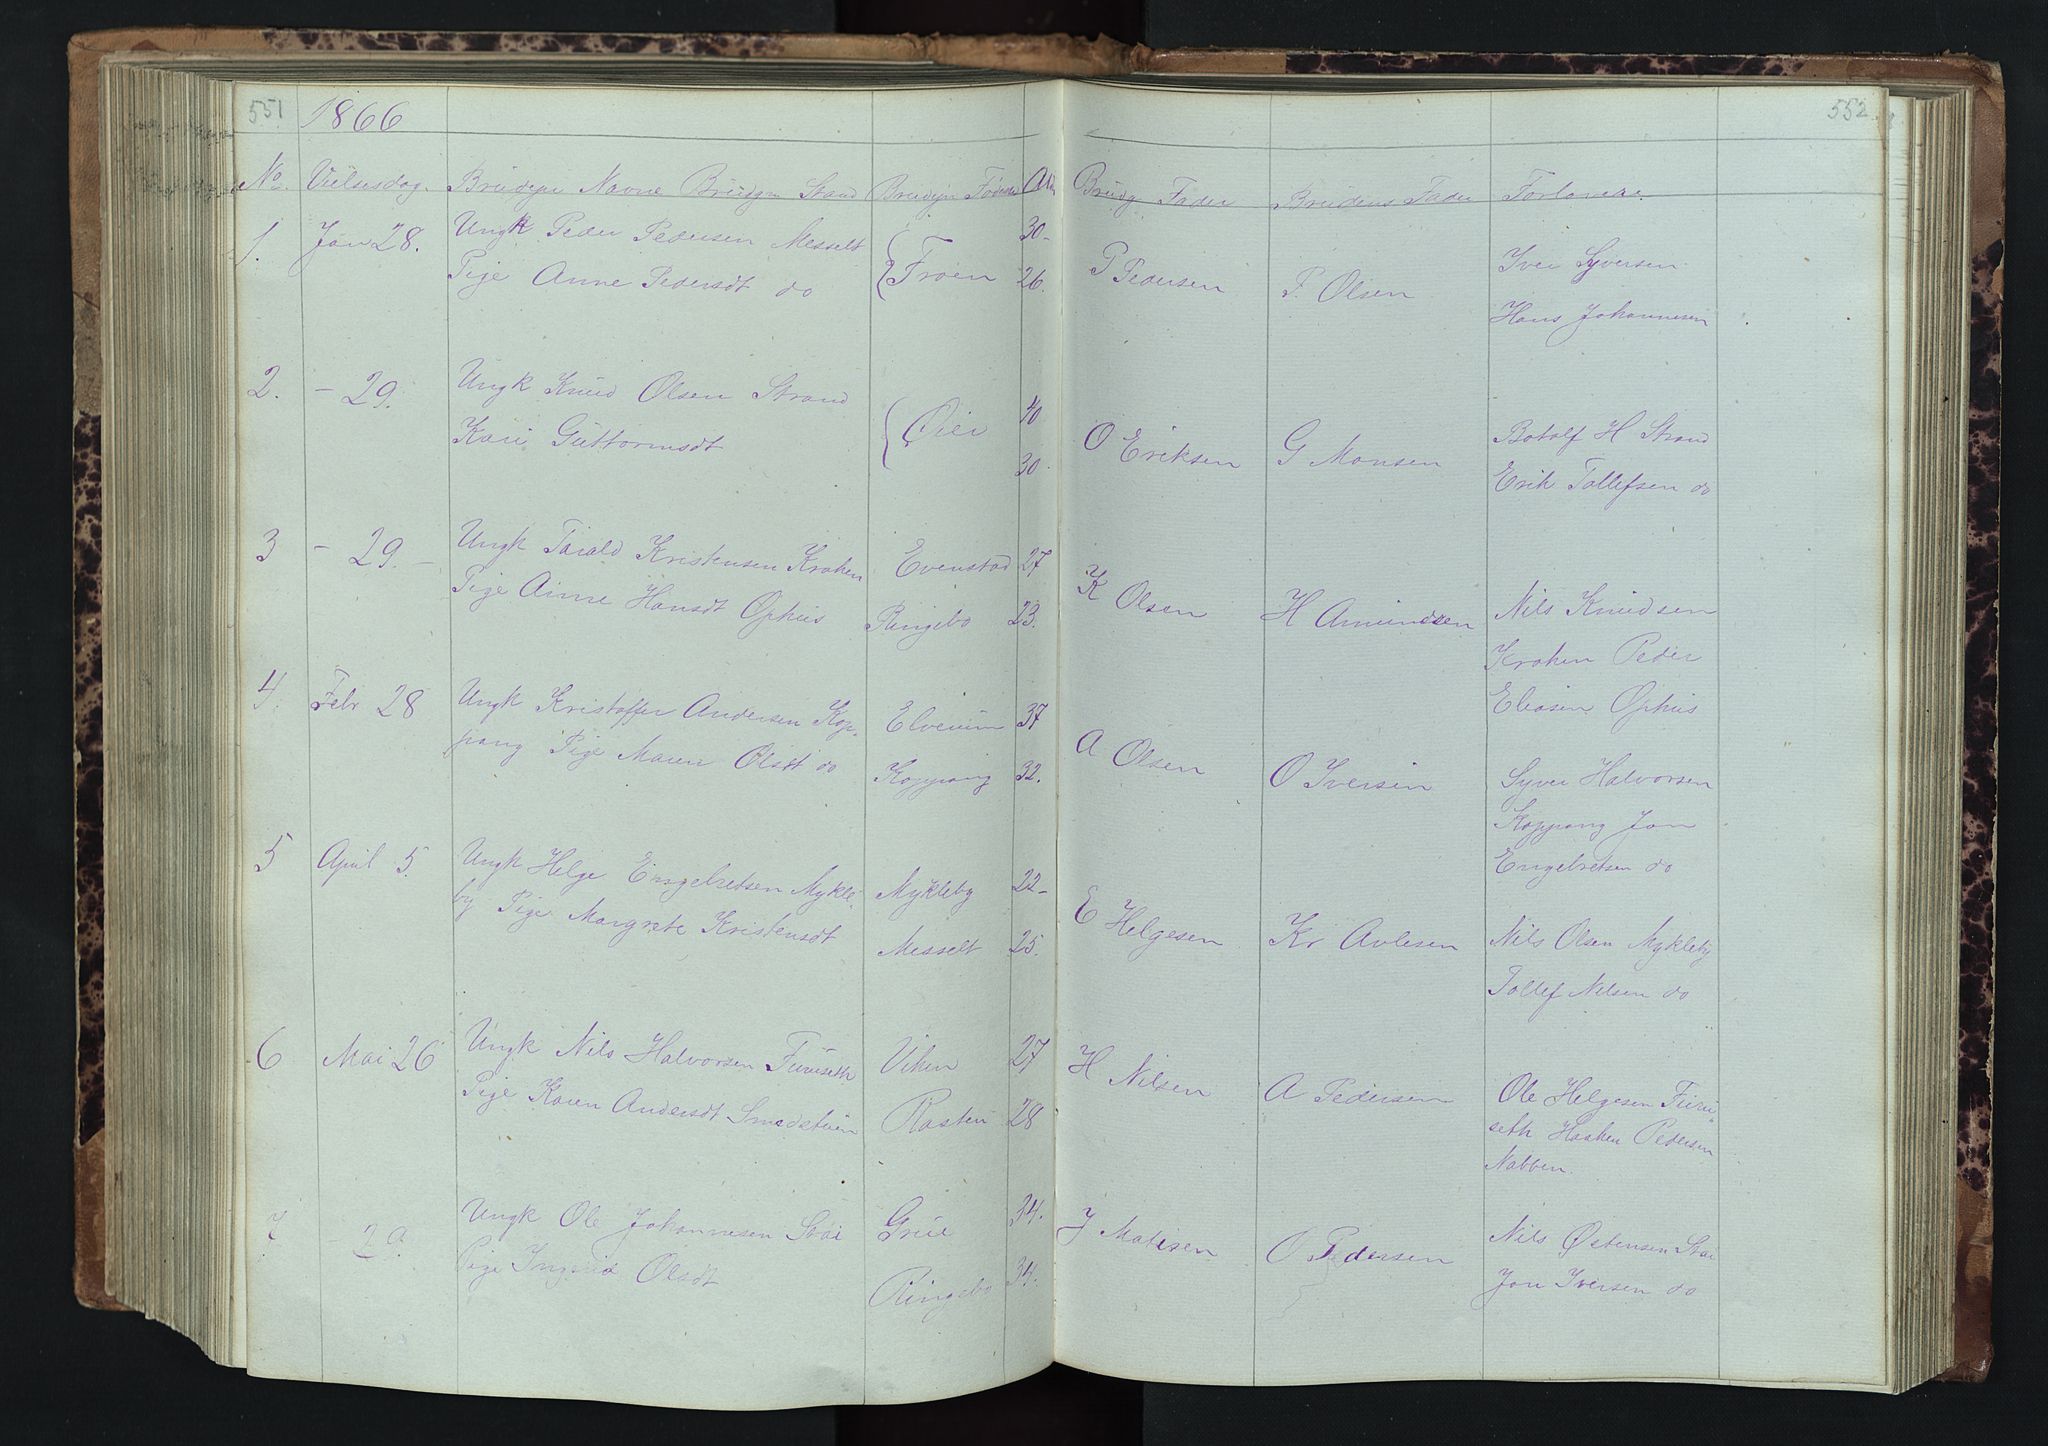 551 1866
No. Vielsesdag. Brudepr Navne Brudgm Stand Brudepr Føde Ald
1. Jan 28. Ungk Peder Pedersen Messelt Froen 30-
Pige Anne Pedersdt do 26.
2. - 29. Ungk Knud Olsen Strand Øier 40
Kari Guttormsdt 30.
3 - 29. - Ungk Taiald Kristensen Kroken Evenstad 27
Pige Anne Hansdt Ophus Ringebo 23.
4. Febr 28 Ungk Kristoffer Andersen Kop- Elverum 37
pang Pige Maren Olsdt do Koppang 32.
5 April 5. Ungk Helge Engelretsen Mykle- Mykleby 22-
by Pige Margrete Kristensdt Messelt 25.
6 Mai 26 Ungk Nils Halvorsen Furuseth Viken 27
Pige Karen Andersdt Smedstuen Rasten 28
7 - 29. Ungk Ole Johannesen Stai Grue 34.
Pige Ingrid Olsdt Ringebo 34.
552.
Brudg Fader Brudens Fader Forlovere.
P Pedersen P. Olsen Iver Syversen
Hans Johannesen
O Eriksen G Monsen Botolf H Strand
Erik Tollefsen do
K Olsen H Amundsen Nils Knudsen
Kroken Peder
Eliasen Ophus
A Olsen O Iversen Syver Halvorsen
Koppang Jon
Engelretsen do
E Helgesen Kr Avlesen Nils Olsen Mykleby
Tollef Nilsen do
H Nilsen A Pedersen Ole Helgesen Furu-
seth Haaken Pedersen
Nabben.
J Matisen O Pedersen Nils Østensen Stai
Jon Iversen do